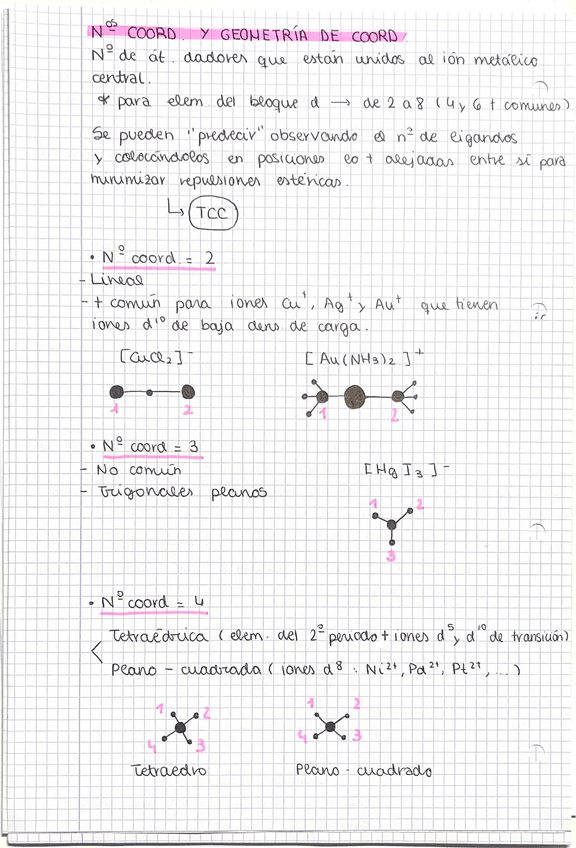 Nºs COORD. Y GEOMETRÍA DE COORD.
Nº de át. dadores que están unidos al ión metálico
central.
* para elem del bloque d → de 2 a 8 (4 y 6 + comunes)
Se pueden "predecir" observando el nº de ligandos
y colocándolos en posiciones lo + alejadas entre sí para
minimizar repulsiones estéricas.
↳ TCC
• Nº coord. = 2
- Lineal
- + común para iones Cu⁺, Ag⁺ y Au⁺ que tienen
iones d¹⁰ de baja dens de carga.
[CuCl₂]⁻ [Au(NH3)₂]⁺
1 2 1 2
• Nº coord = 3
- No común
- Trigonales planos
[HgI₃]⁻
1 2
3
• Nº coord = 4
Tetraédrica (elem. del 2º periodo + iones d⁵ y d¹⁰ de transición)
Plano - cuadrada (iones d⁸ : Ni²⁺, Pd²⁺, Pt²⁺, ...)
1 2 1 2
4 3 4 3
Tetraedro Plano - cuadrado